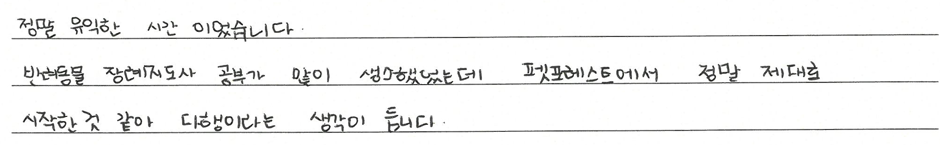 정말 유익한 시간 이었습니다.
반려동물 장례지도사 공부가 많이 생소했었는데 펫포레스트에서 정말 제대로
시작한 것 같아 다행이라는 생각이 듭니다.